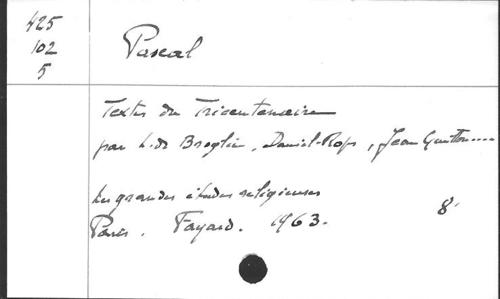 425
102
5
Pascal
Textes du Tricentenaire
par L. de Broglie, Daniel-Rops, Jean Guitton....
Les grandes études religieuses
Paris. Fayard. 1963.
8°